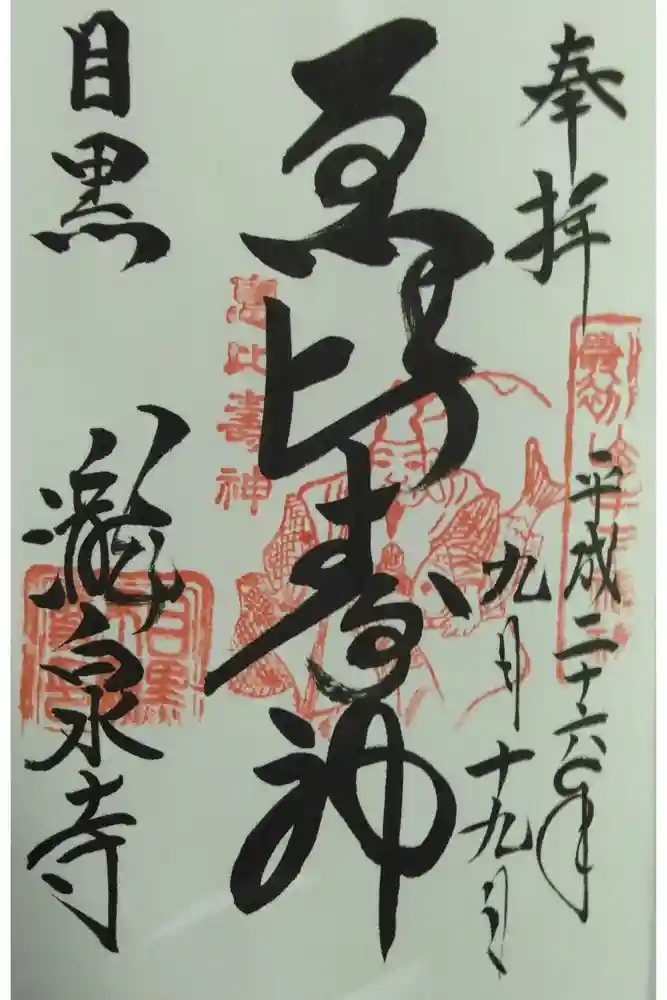 奉拝
平成二十六年
九月十九日
恵比寿神
恵比壽神
目黒 瀧泉寺